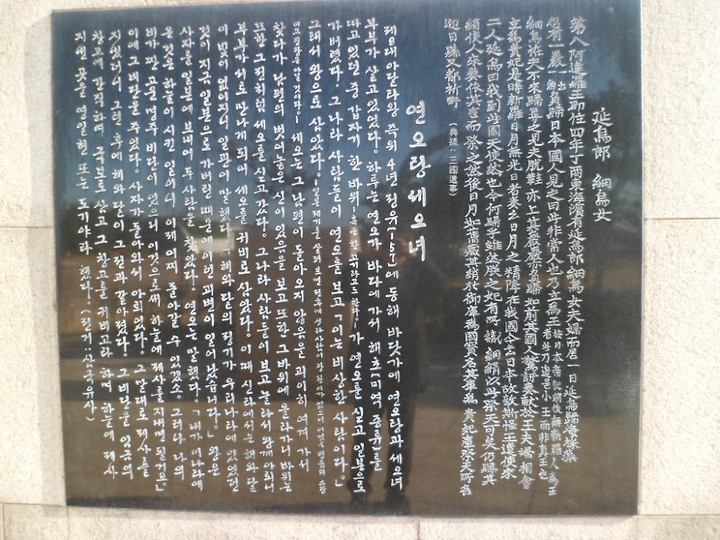 延烏郞 細烏女
第八阿達羅王卽位四年丁酉東海濱有延烏郞細烏女夫婦而居一日延烏歸海採藻
忽有一巖(一云一魚)負歸日本國人見之曰此非常人也乃立爲王(按日本帝記前後無新羅人爲王者此乃邊邑小王而非眞王也)
細烏怪夫不來歸尋之見夫脫鞋亦上其巖巖亦負歸如前其國人驚訝奏獻於王夫婦相會
立爲貴妃是時新羅日月無光日者奏云日月之精降在我國今去日本故致斯怪王遣使來
二人延烏曰我到此國天使然也今何歸乎雖然朕之妃有所織細綃以此祭天可矣仍賜其
綃使人來奏依其言而祭之然後日月如舊藏其綃於御庫爲國寶名其庫爲貴妃庫祭天所名
迎日縣又都祈野 (典據:三國遺事)
연오랑 세오녀
제8대 아달라왕 즉위 4년 정유(157)에 동해 바닷가에 연오랑과 세오녀
부부가 살고 있었다. 하루는 연오가 바다에 가서 해조(미역 종류)를
따고 있던 중 갑자기 한 바위(혹은 한 고기라고도 한다)가 연오를 싣고 일본으로
가버렸다. 그 나라 사람들이 연오를 보고 「이는 비상한 사람이다.」
그래서 왕으로 삼았다.(일본제기를 살펴보면 전후에 신라 사람이 왕된 이가 없으니 이것은 변읍의 소왕
이고 진왕은 아닐 것이다) 세오는 그 남편이 돌아오지 않음을 괴이히 여겨 가서
찾다가 남편의 벗어놓은 신이 있음을 보고 또한 그 바위에 올라가니 바위는
또한 그전처럼 세오를 싣고 갔다. 그 나라 사람들이 보고 놀라서 왕께 아뢰니
부부가 서로 만나게 되어 세오를 귀비로 삼았다. 이때 신라에서는 해와 달
이 빛이 없어지니 일관이 말했다. 「해와 달의 정기가 우리나라에 있었던
것이 지금 일본으로 가버린 때문에 이런 괴변이 일어났습니다.」 왕은
사자를 일본에 보내어 두 사람을 찾았다. 연오는 말했다. 「내가 이 나라에
온 것은 하늘이 시킨 일이니 이제 어찌 돌아갈 수 있겠소. 그러나 나의
비가 짠 고운 명주 비단이 있으니 이것으로써 하늘에 제사를 지내면 될거요」
이에 그 비단을 주었다. 사자가 돌아와서 아뢰었다. 그 말대로 제사를
지냈더니 그런 후에 해와 달이 그전과 같아졌다. 그 비단을 임금의
창고에 간직하여 국보로 삼고 그 창고를 귀비고라 하며 하늘에 제사
지낸 곳을 영일현 또는 도기야라 했다. (전거:삼국유사)